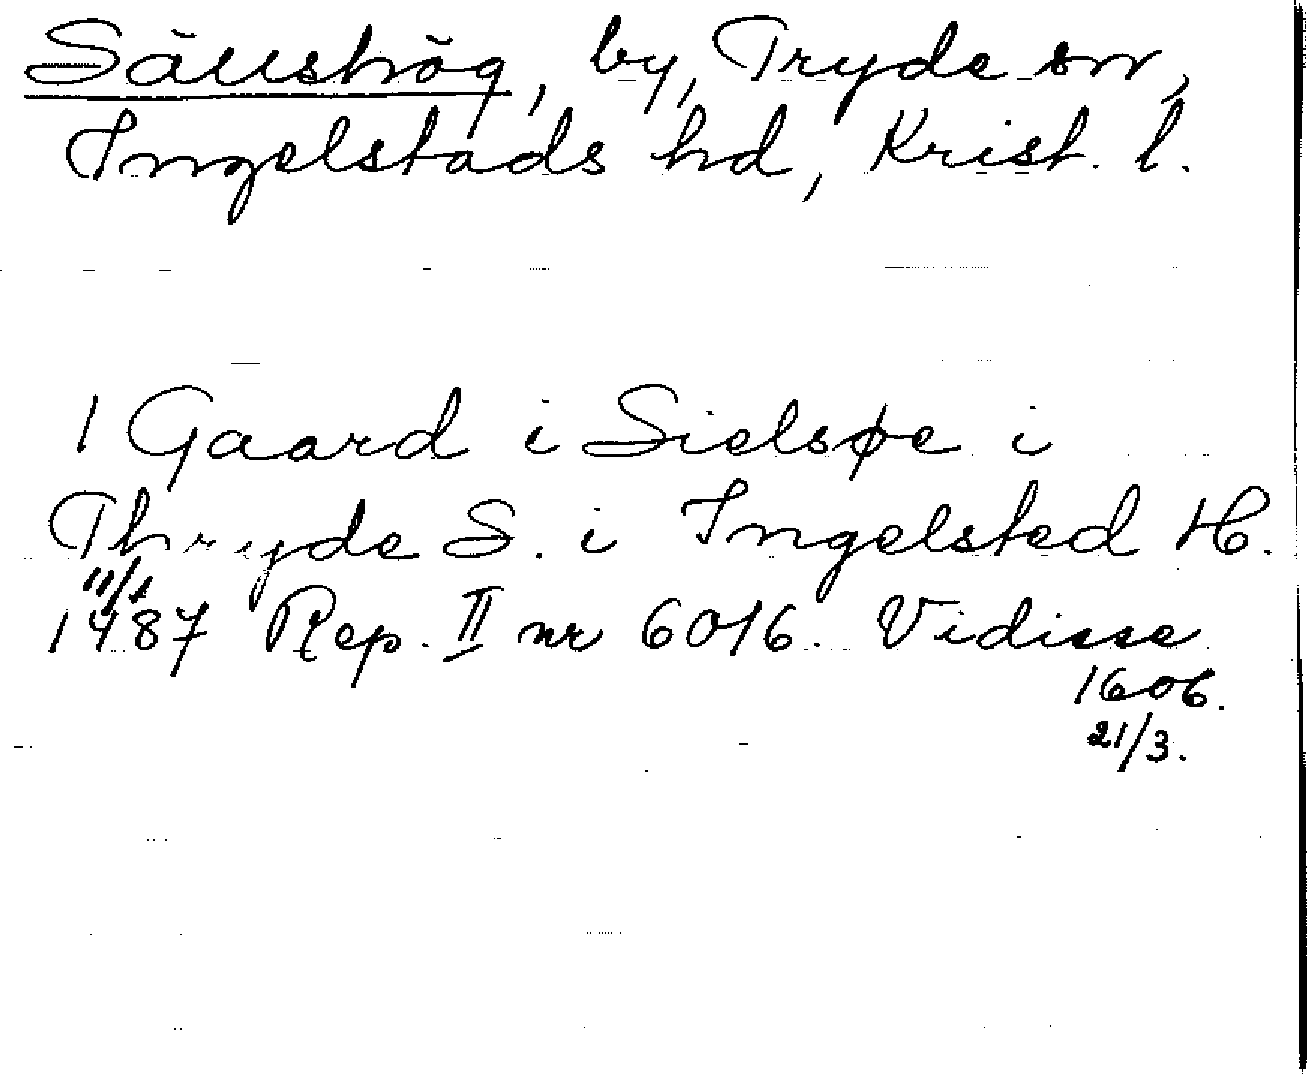 Sällshög, by, Tryde sn,
Ingelstads hd, Krist. l.
1 Gaard i Sielsøe i
Thryde S. i Ingelsted H.
11/1
1487 Rep. II nr 6016. Vidisse
1606.
21/3.